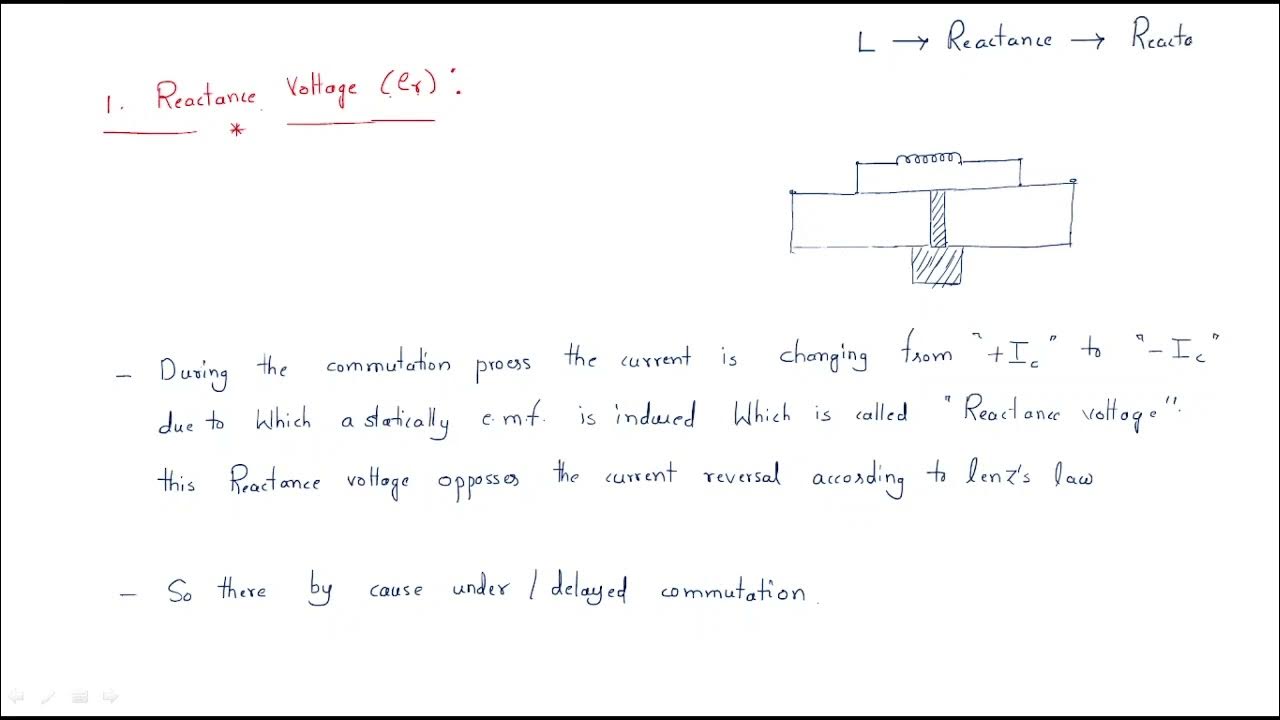 L → Reactance → Reacta
1. Reactance Voltage (er):
*
- During the commutation process the current is changing from "+Ic" to "-Ic"
due to Which a statically e.m.f. is induced Which is called "Reactance voltage".
this Reactance voltage opposses the current reversal according to lenz's law
- So there by cause under / delayed commutation.